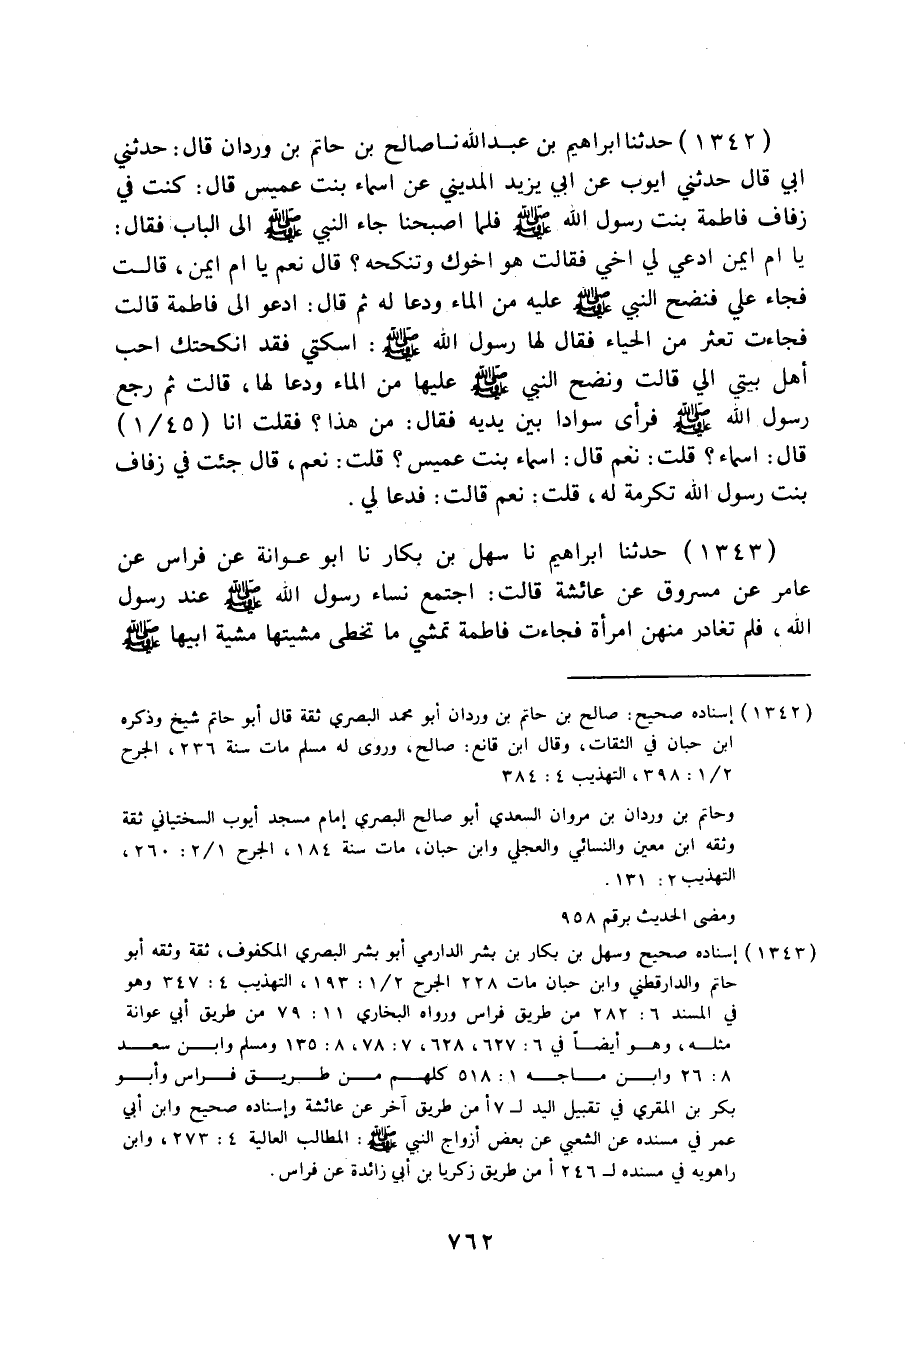 (١٣٤٢) حدثنا ابراهيم بن عبدالله نا صالح بن حاتم بن وردان قال: حدثني
ابي قال حدثني ايوب عن ابي يزيد المديني عن اسماء بنت عميس قال: كنت في
زفاف فاطمة بنت رسول الله ﷺ فلما اصبحنا جاء النبي ﷺ الى الباب فقال:
يا ام ايمن ادعي لي اخي فقالت هو اخوك وتنكحه؟ قال نعم يا ام ايمن، قالت
فجاء علي فنضح النبي ﷺ عليه من الماء ودعا له ثم قال: ادعو الى فاطمة قالت
فجاءت تعثر من الحياء فقال لها رسول الله ﷺ: اسكتي فقد انكحتك احب
أهل بيتي الي قالت ونضح النبي ﷺ عليها من الماء ودعا لها، قالت ثم رجع
رسول الله ﷺ فرأى سوادا بين يديه فقال: من هذا؟ فقلت انا (١/٤٥)
قال: اسماء؟ قلت: نعم قال: اسماء بنت عميس؟ قلت: نعم، قال جئت في زفاف
بنت رسول الله تكرمة له، قلت: نعم قالت: فدعا لي.
(١٣٤٣) حدثنا ابراهيم نا سهل بن بكار نا ابو عوانة عن فراس عن
عامر عن مسروق عن عائشة قالت: اجتمع نساء رسول الله ﷺ عند رسول
الله، فلم تغادر منهن امرأة فجاءت فاطمة تمشي ما تخطى مشيتها مشية ابيها ﷺ
(١٣٤٢) إسناده صحيح: صالح بن حاتم بن وردان أبو محمد البصري ثقة قال أبو حاتم شيخ وذكره
ابن حبان في الثقات، وقال ابن قانع: صالح، وروى له مسلم مات سنة ٢٣٦، الجرح
١/٢: ٣٩٨، التهذيب ٤: ٣٨٤
وحاتم بن وردان بن مروان السعدي أبو صالح البصري إمام مسجد أيوب السختياني ثقة
وثقه ابن معين والنسائي والعجلي وابن حبان، مات سنة ١٨٤، الجرح ٢/١: ٢٦٠،
التهذيب ٢: ١٣١.
ومضى الحديث برقم ٩٥٨
(١٣٤٣) إسناده صحيح وسهل بن بكار بن بشر الدارمي أبو بشر البصري المكفوف، ثقة وثقه أبو
حاتم والدارقطني وابن حبان مات ٢٢٨ الجرح ١/٢: ١٩٣، التهذيب ٤: ٣٤٧ وهو
في المسند ٦: ٢٨٢ من طريق فراس ورواه البخاري ١١: ٧٩ من طريق أبي عوانة
مثله، وهو أيضاً في ٦: ٦٢٧، ٦٢٨، ٧: ٧٨، ٨: ١٣٥ ومسلم وابن سعد
٨: ٢٦ وابن ماجه ١: ٥١٨ كلهم من طريق فراس وأبو
بكر بن المقري في تقبيل اليد لـ ٧أ من طريق آخر عن عائشة وإسناده صحيح وابن أبي
عمر في مسنده عن الشعبي عن بعض أزواج النبي ﷺ: المطالب العالية ٤: ٢٧٣، وابن
راهويه في مسنده لـ ٢٤٦ أ من طريق زكريا بن أبي زائدة عن فراس.
٧٦٢